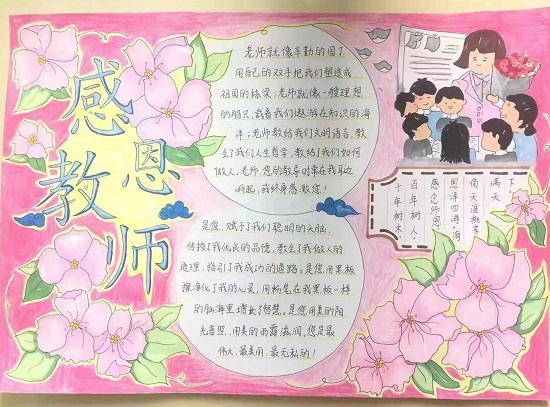 感恩教师
老师就像辛勤的园丁
用自己的双手把我们塑造成
祖国的栋梁;老师就像一艘理想
的船只,载着我们遨游在知识的海
洋;老师教给我们文明语言,教
会了我们人生哲学,教给了我们如何
做人,老师,您的教导时常在我耳边
响起,我终身感激您!
是您,赋予了我们聪明的头脑,
传授了我优良的品德,教会了我做人的
道理,指引了我成功的道路。是您用黑板
擦净化了我的心灵,用粉笔在我黑板一样
的脑海里增长了智慧。是您用美的阳
光普照,用美的雨露滋润,您是最
伟大、最美丽、最无私的!
十年树木,
百年树人,
感念师恩
恩泽四海,海
南天遍桃李
满天
下